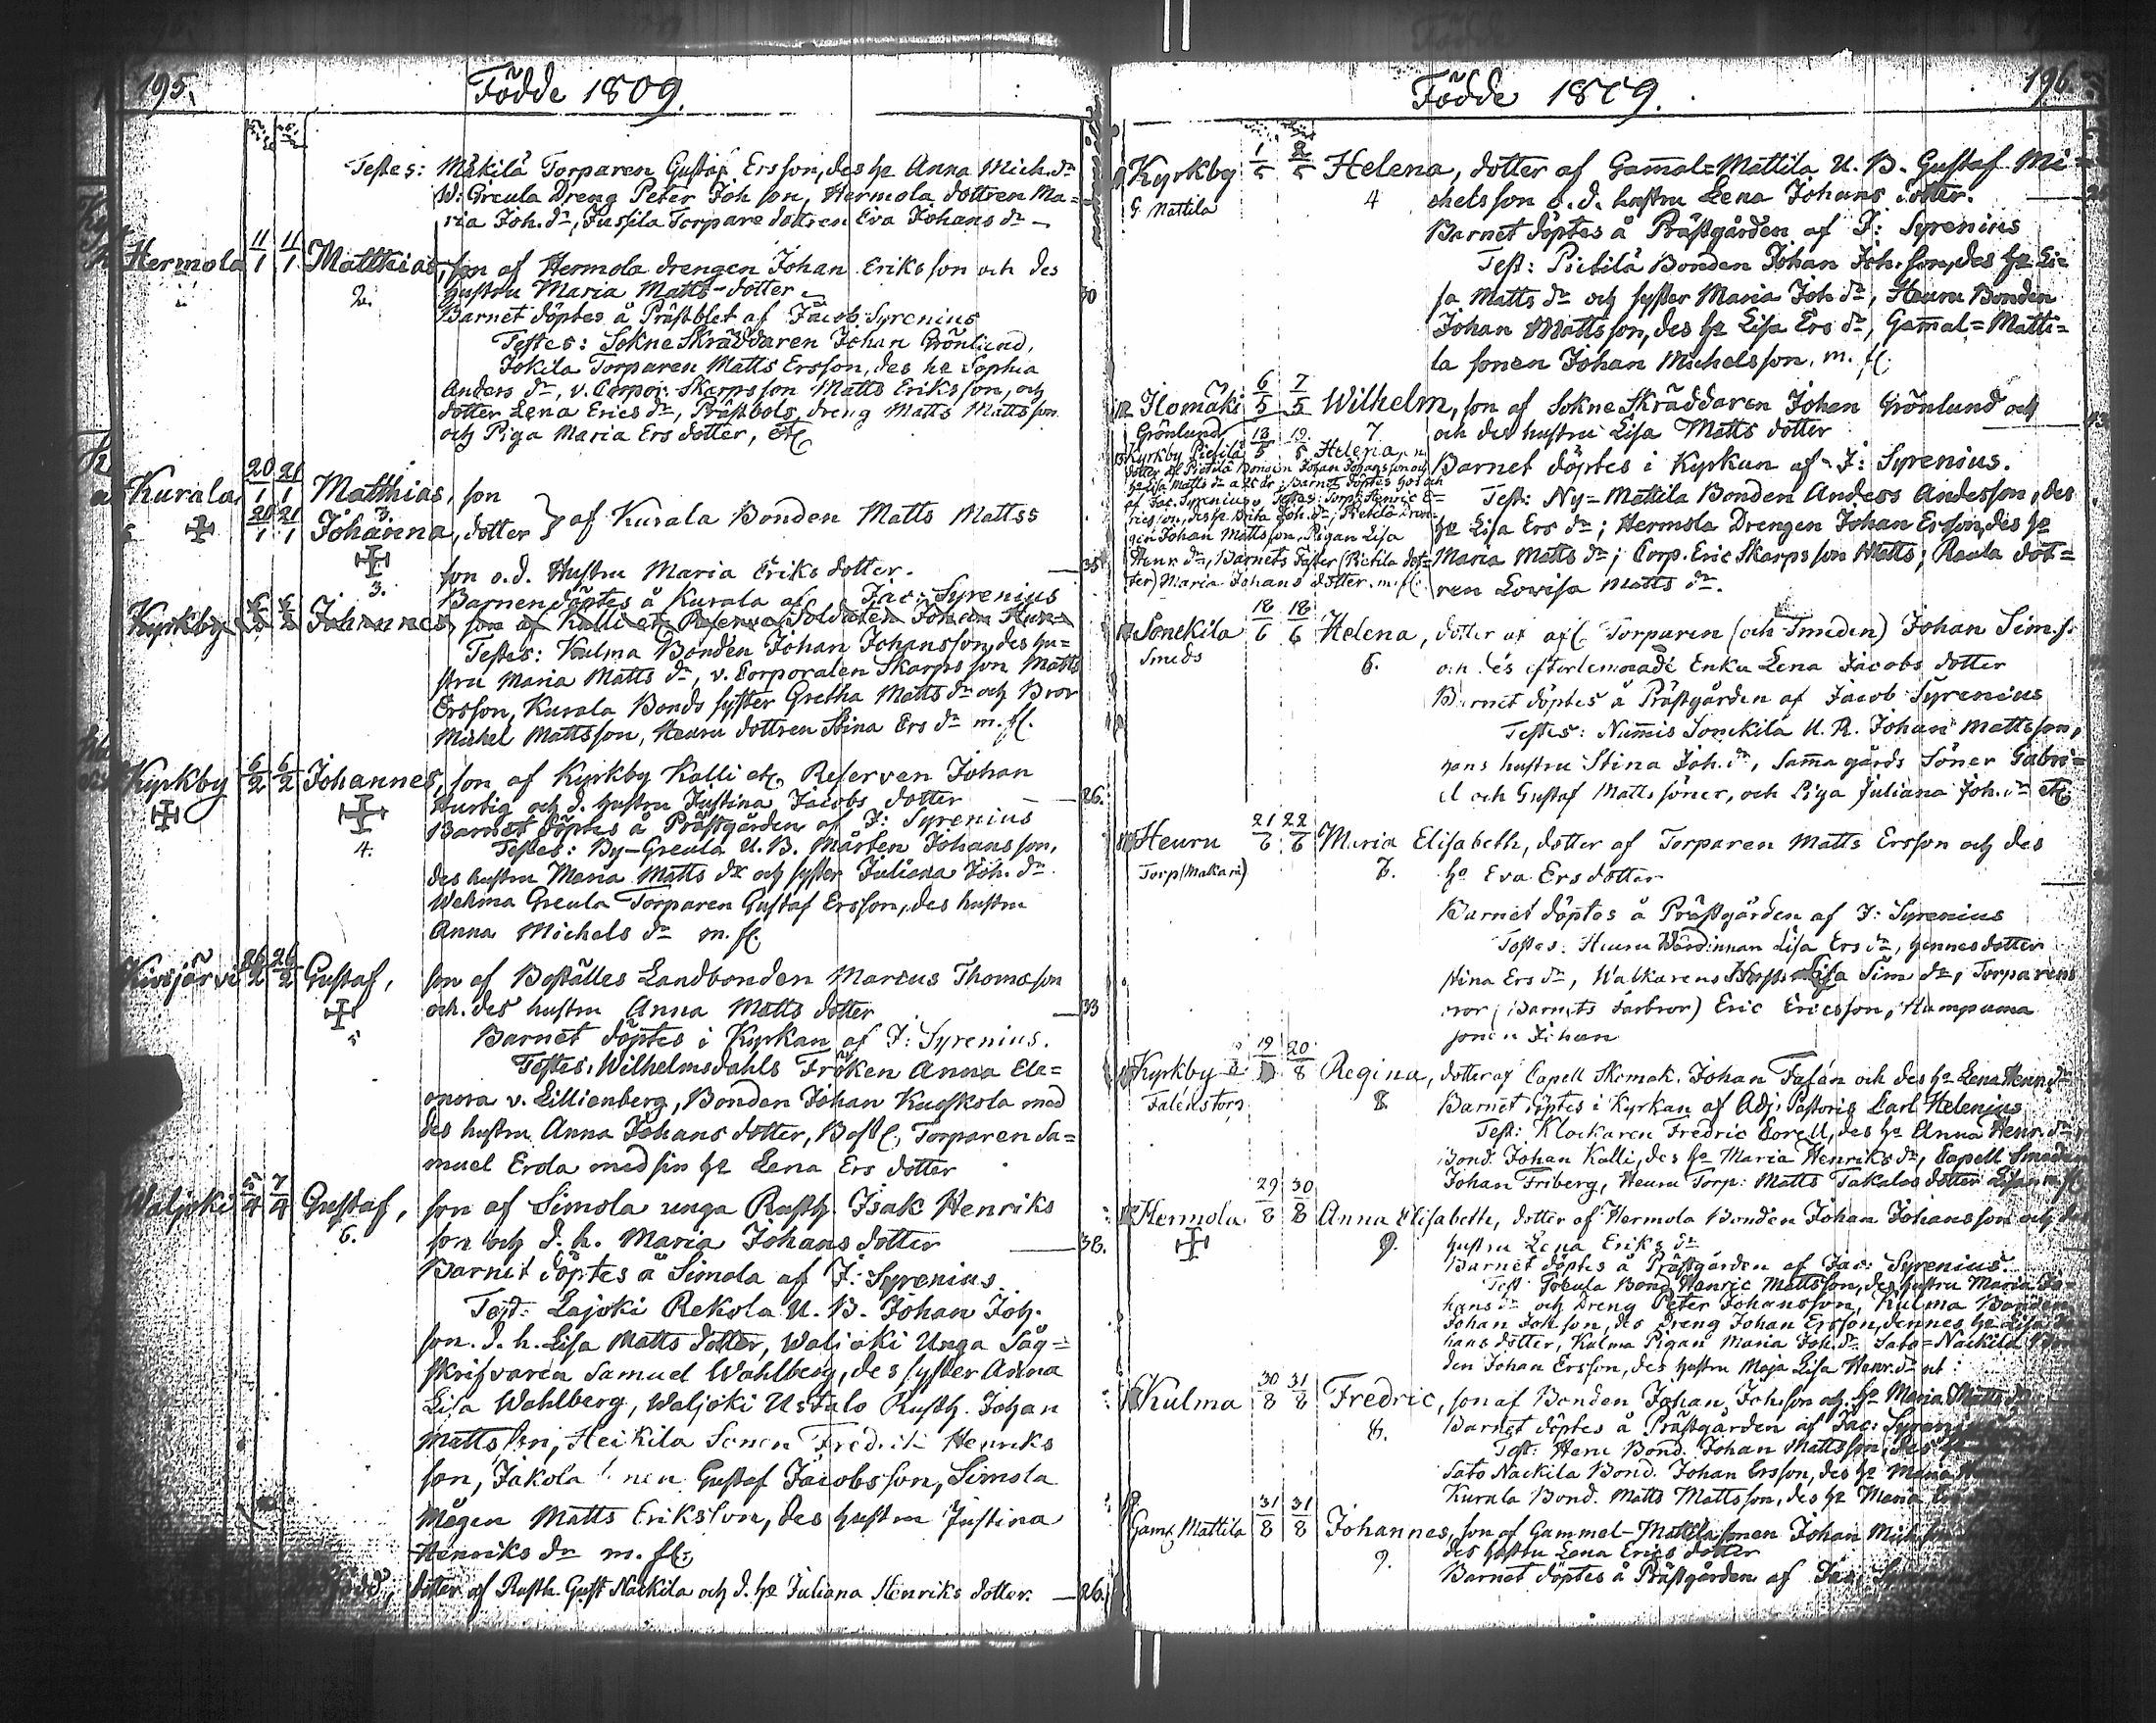 195.
Födde 1809.
Testes: Mäkilä Torparen Gustaf Ersson, des hr Anna Mich. dr
W: Greula Dreng Peter Joh son, Hermola dottren Ma=
ria Joh. dr, Jussila Torpare dottren Eva Johans dr
Hermola 11/1 11/1 Matthias, son af Hermola drengen Johan Eriksson och des
2. hustru Maria Matts-dotter 30
Barnet döptes å Prästblet af Jacob Syrenius
Testes: Sokne Skräddaren Johan Grönlund,
Jokila Torparen Matts Ersson, des hr Sophia
Anders dr, v. Corpor: Skarps son Matts Eriksson, och
dotter Lena Erics dr, Prästbols dreng Matts Mattsson
och Piga Maria Ers dotter, etc
Kurala 20/1 21/1 Matthias, son
3
20/1 21/1 Johanna, dotter } af Kurala Bonden Matts Mattss
son o. d. Hustru Maria Eriks dotter. 35
3.
Barnen döptes å Kurala af Jac: Syrenius
Kyrkby 6/2 6/2 Johannes, son af Kalli et Reserve Soldaten Johan Hur=
Testes: Kulma Bonden Johan Johansson, des hu=
stru Maria Matts dr, v. Corporalen Skarps son Matts
Ersson, Kurala Bonds syster Gretha Matts dr och Bror
Michel Mattsson, Heuru dottren Stina Ers dr m. fl.
Kyrkby 6/2 6/2 Johannes, son af Kyrkby Kalli etc Reserven Johan
Hurtig och d. hustru Justina Jacobs dotter 26.
Barnet döptes å Prästgården af J: Syrenius
4. Testes: By-Greula U. B. Mårten Johansson,
des hustru Maria Matts dr och syster Juliana Joh. dr
Wehma Greula Torparen Gustaf Ersson, des hustru
Anna Michels dr m. fl.
Kivijärvi 26/2 26/2 Gustaf, son af Boställes Landbonden Marcus Thomasson
och des hustru Anna Matts dotter 33
5
Barnet döptes i Kyrkan af J: Syrenius.
Testes, Wilhelmsdahls Fröken Anna Ele=
onora v. Lillienberg, Bonden Johan Kuoskola med
des hustru Anna Johans dotter, Torparen Sa=
muel Erola med sin hr Lena Ers dotter
Waljoki 5/4 7/4 Gustaf, son af Simola unga Rusth. Isak Henriks
6. son och d. h. Maria Johans dotter 38.
Barnet döptes å Simola af J: Syrenius.
Test: Lajoki Rekola U. B. Johan Joh.
son. d. h. Lisa Matts dotter, Waljoki Unga Såg=
skrifvaren Samuel Wahlberg, des syster Anna
Lisa Wahlberg, Waljoki Ustalo Rusth. Johan
Matts son, Heikila Sonen Fredrik Henriks
son, Jakola Gustaf Jacobsson, Simola
Mågen Matts Eriksson, des hustru Justina
Henriks dr m. fl.
dotter af Rusth. Gust Nackila och d. hr Juliana Henriks dotter. 26.
Födde 1809.
196
Kyrkby 1/5 2/5 Helena, dotter af Gamal=Mattila U. B. Gustaf Mi=
G. Mattila 4 chelsson o. d. hustru Lena Johans dotter.
Barnet döptes å Prästgården af J: Syrenius
Test: Pietilä Bonden Johan Joh. son, des hr Li=
sa Matts dr och syster Maria Joh dr, Heuru Bonden
Johan Mattsson, des hr Lisa Ers dr, Gamal=Matti=
la sonen Johan Michelsson. m. fl.
Ilomäki 6/5 7/5 Wilhelm, son af Sokne Skräddaren Johan Grönlund och
Grönlund 7 och des hustru Lisa Matts dotter
Barnet döptes i Kyrkan af J: Syrenius.
Test: Ny=Mattila Bonden Anders Andersson, des
hr Lisa Ers dr; Hermola Drengen Johan Ersson, des hr
Maria Matts dr; Corp. Eric Skarps son Matts; Raula dot=
ren Lovisa Matts dr.
Kyrkby Pietilä 18/5 19/5 Helena,
dotter af Pietilä Bonden Johan Johansson och
hr Lisa Matts dr
af Jac. Syrenius. Testes: Torp: Henric E=
ricsson, des hr Brita Joh. dr; Pietilä Dren=
gen Johan Mattsson, Pigan Lisa
Henr. dr, Barnets Faster (Pietila dot=
ter) Maria Johans dotter. m. fl.
Sonckila 18/6 18/6 Helena, dotter af afl. Torparen (och Smeden) Johan Sim. s.
Smeds 6. och des efterlemnade Enka Lena Jacobs dotter
Barnet döptes å Prästgården af Jacob Syrenius
Testes: Nummis Sonckila U. R. Johan Mattsson,
hans hustru Stina Joh. dr, Samma gårds Söner Gabri=
el och Gustaf Matts söner, och Piga Juliana Joh. dr etc
Heuru 21/6 22/6 Maria Elisabeth, dotter af Torparen Matts Ersson och des
Torp (Makari) 7. hr Eva Ersdotter
Barnet döptes å Prästgården af J: Syrenius
Testes: Heuru Wärdinnan Lisa Ers dr, hennes dotter
Stina Ers dr, Walkarens Lisa Sim dr, Torparens
bror (Barnets farbror) Eric Ericsson, Hampuma
sonen Johan
Kyrkby 19/8 20/8 Regina, dotter af Capell Skomak. Johan Falén och des hr Lena Henr. dr
Falens torp 8. Barnet döptes i Kyrkan af Adj: Pastoris Carl Helenius
Test: Klockaren Fredric Corell, des hr Anna Henr. dr
Bond. Johan Kalli, des hr Maria Henriks dr, Capell Smeden
Johan Friberg, Heuru Torp: Matts Takalas dotter Lisa m. fl.
Hermola 29/8 30/8 Anna Elisabeth, dotter af Hermola Bonden Johan Johansson och
9. hustru Lena Eriks dr
Barnet döptes å Prästgården af Jac: Syrenius.
Test Bond Henric Mattsson, des hustru Maria Jo=
hans dr och Dreng Peter Johansson, Kulma Bonden
Johan Johsson, des Dreng Johan Ersson, dennes hr Lisa Jo
hans dotter, Kulma Pigan Maria Joh. dr Sato=Nackila Bon
den Johan Ersson, des hustru Maja Lisa Henr. dr
Kulma 30/8 31/8 Fredric, son af Bonden Johan Johsson och hr Maria Matts dr
8. Barnet döptes å Prästgården af Jac: Syreni
Test: Heru Bond. Johan Mattsson, des
Sato Nackila Bond. Johan Ersson, des hr Maria
Kurala Bond. Matts Mattsson, des hr Maria
Gaml. Mattila 31/8 31/8 Johannes, son af Gammel-Mattila sonen Johan Mich
9. des hustru Lena Erics dotter
Barnet döptes å Prästgården af Jac: